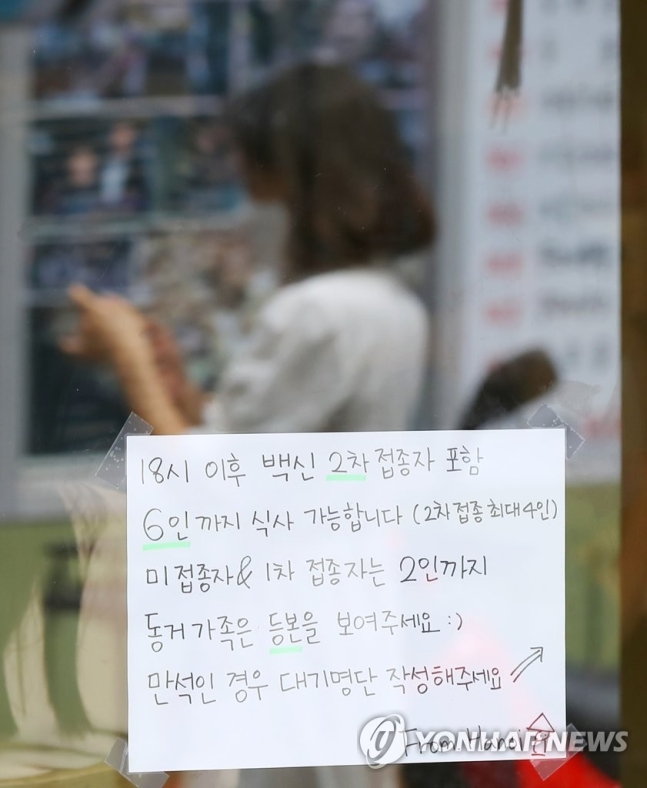 18시 이후 백신 2차 접종자 포함
6인까지 식사 가능합니다 (2차 접종 최대 4인)
미접종자 & 1차 접종자는 2인까지
동거가족은 등본을 보여주세요 :)
만석인 경우 대기명단 작성해주세요
From. Hanok
YONHAP NEWS